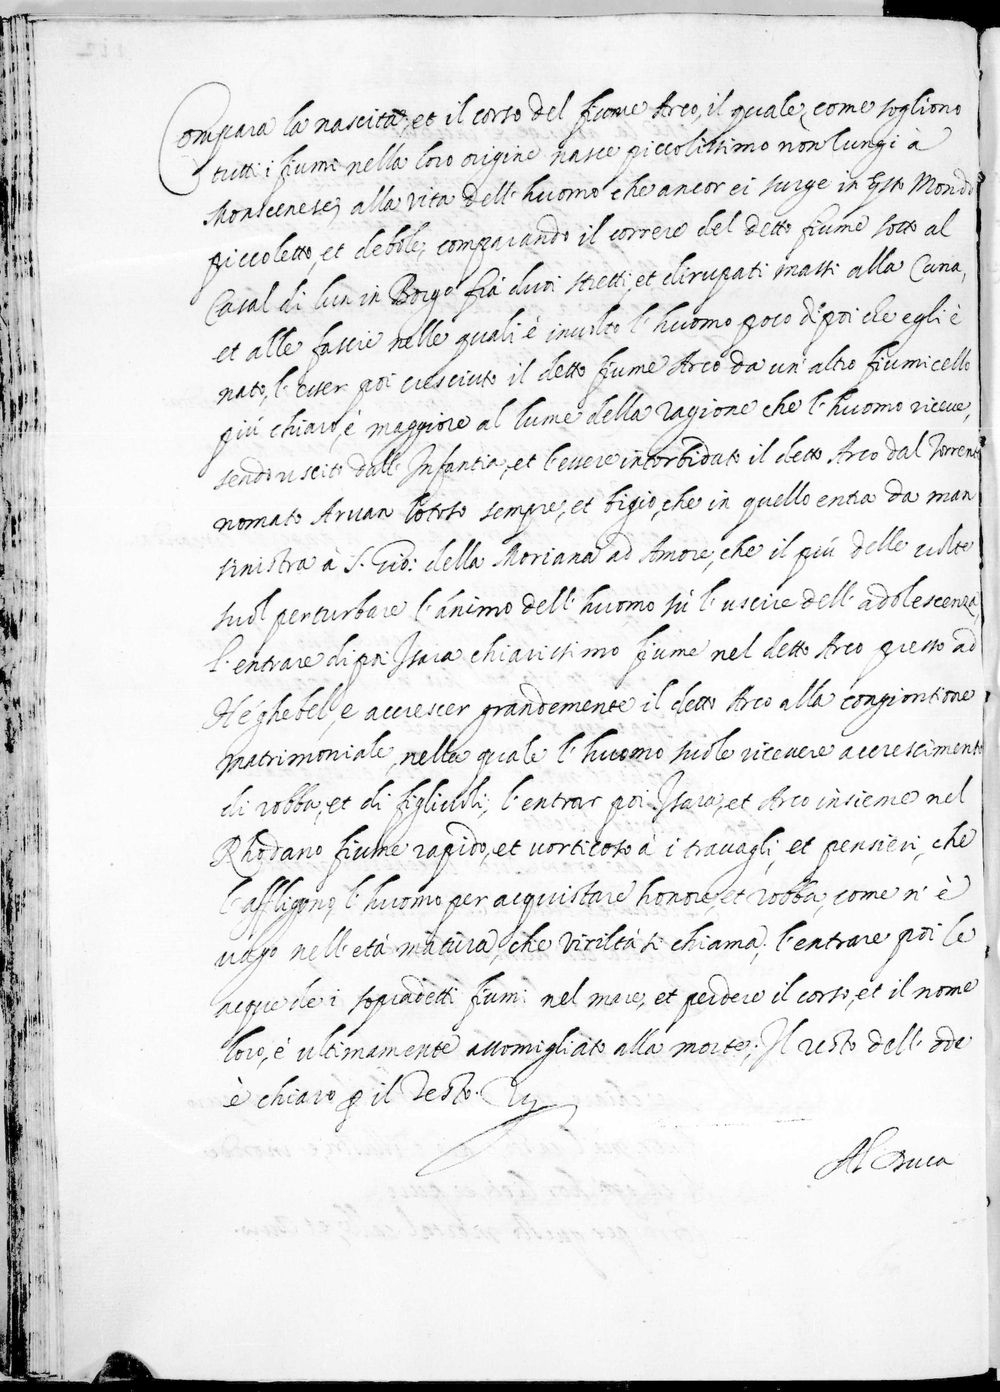 Compara la nascita, et il corso del fiume Arco, il quale, come sogliono
tutti i fiumi nella loro origine nasce piccolissimo non lungi à
Monsenese, alla vita dell'huomo che ancor ei surge in q̃sto Mondo
piccoletto, et debole, comparando il correre del detto fiume sotto al
Casal di lun in Borgo frà duoi stretti, et dirupati massi alla Cuna,
et alle fascie nelle quali è involto l'huomo poco dipoi che egli è
nato, l'esser poi cresciuto il detto fiume Arco da un' altro fiumicello
più chiaro, è maggiore al lume della ragione che l'huomo riceve,
sendo uscito dall' Infantia, et l'essere intorbidato il detto Arco dal Torrente
nomato Aruan lotoso sempre, et bigio, che in quello entra da man
sinistra à S. Gio: della Moriana ad Amore, che il più delle volte
suol perturbare l'animo dell'huomo sù l'uscire dell'adolescenza,
l'entrare dipoi Isara chiarissimo fiume nel detto Arco presso ad
Héghebel, e accrescer grandemente il detto Arco alla congiontione
matrimoniale, nella quale l'huomo suole ricevere accrescimento
di robba, et di figliuoli, l'entrar poi Isara, et Arco insieme nel
Rhodano fiume rapido, et vorticoso à i travagli, et pensieri, che
l'affligono, l'huomo per acquistare honore, et robba, come n'è
vago nell'età matura, che virilità si chiama, l'entrare poi le
acque de i sopradetti fiumi nel mare, et perdere il corso, et il nome
loro, è ultimamente assomigliato alla morte; Il resto dell'ode
è chiaro ꝑ il Testo.
Al Duca